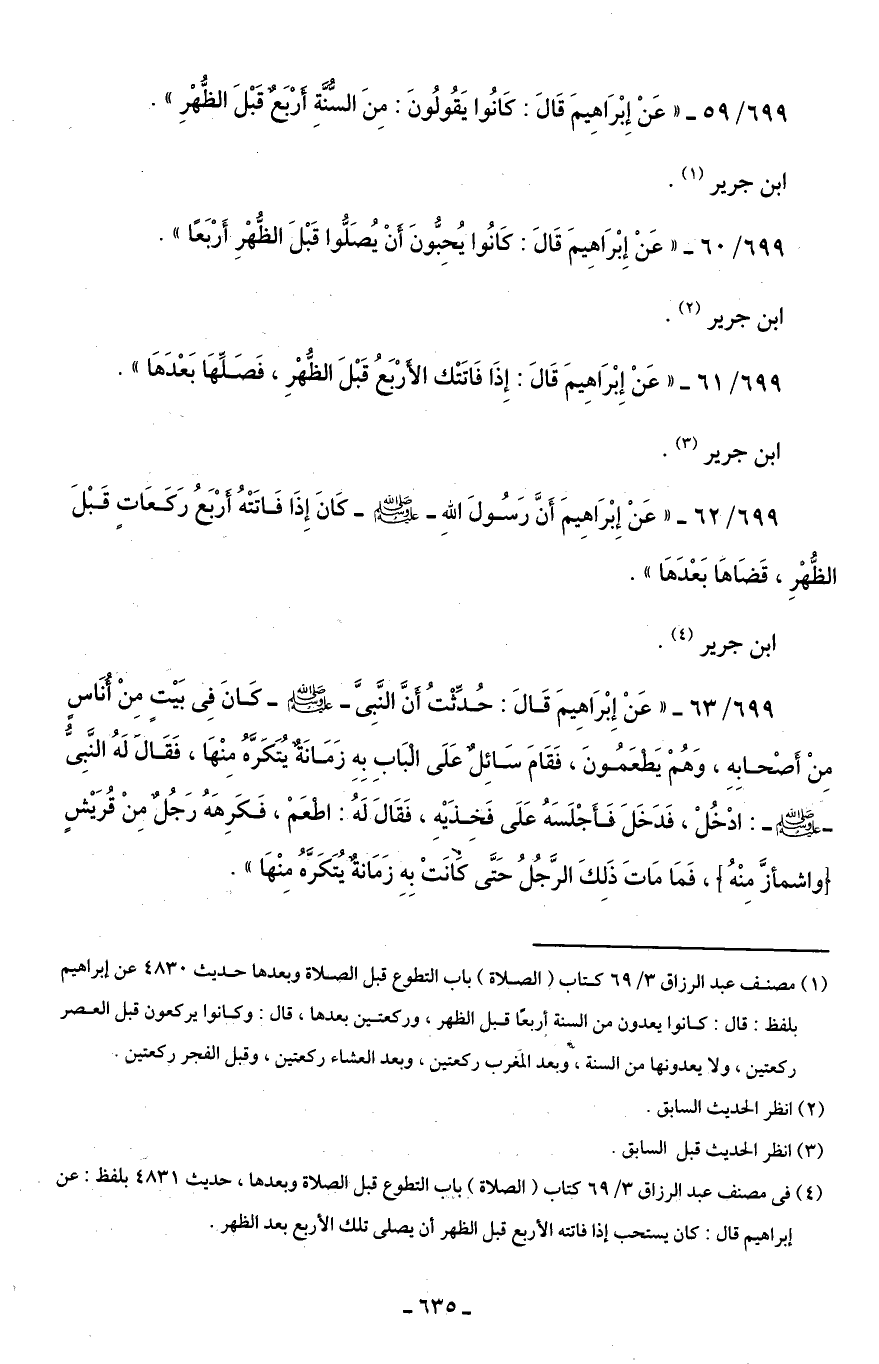 ٥٩/٦٩٩ ـ « عَنْ إِبْرَاهِيمَ قَالَ : كَانُوا يَقُولُونَ : مِنَ السُّنَّةِ أَرْبَعٌ قَبْلَ الظُّهْرِ » .
ابن جرير (١) .
٦٠/٦٩٩ ـ « عَنْ إِبْرَاهِيمَ قَالَ : كَانُوا يُحِبُّونَ أَنْ يُصَلُّوا قَبْلَ الظُّهْرِ أَرْبَعًا » .
ابن جرير (٢) .
٦١/٦٩٩ ـ « عَنْ إِبْرَاهِيمَ قَالَ : إِذَا فَاتَتْك الأَرْبَعُ قَبْلَ الظُّهْرِ ، فَصَلِّهَا بَعْدَهَا » .
ابن جرير (٣) .
٦٢/٦٩٩ ـ « عَنْ إِبْرَاهِيمَ أَنَّ رَسُولَ اللهِ ـ ﷺ ـ كَانَ إِذَا فَاتَتْهُ أَرْبَعُ رَكَعَاتٍ قَبْلَ
الظُّهْرِ ، قَضَاهَا بَعْدَهَا » .
ابن جرير (٤) .
٦٣/٦٩٩ ـ « عَنْ إِبْرَاهِيمَ قَالَ : حُدِّثْتُ أَنَّ النَّبِىَّ ـ ﷺ ـ كَانَ فِى بَيْتٍ مِنْ أُنَاسٍ
مِنْ أَصْحَابِهِ ، وَهُمْ يَطْعَمُونَ ، فَقَامَ سَائِلٌ عَلَى الْبَابِ بِهِ زَمَانَةٌ يُتَكَرَّهُ مِنْهَا ، فَقَالَ لَهُ النَّبِىُّ
ـ ﷺ ـ : ادْخُلْ ، فَدَخَلَ فَأَجْلَسَهُ عَلَى فَخِذَيْهِ ، فَقَالَ لَهُ : اطْعَمْ ، فَكَرِهَهُ رَجُلٌ مِنْ قُرَيْشٍ
{واشمأزَّ مِنْهُ} ، فَمَا مَاتَ ذَلِكَ الرَّجُلُ حَتَّى كَانَتْ بِهِ زَمَانَةٌ يُتَكَرَّهُ مِنْهَا » .
(١) مصنف عبد الرزاق ٣/ ٦٩ كتاب ( الصلاة ) باب التطوع قبل الصلاة وبعدها حديث ٤٨٣٠ عن إبراهيم
بلفظ : قال : كانوا يعدون من السنة أربعًا قبل الظهر ، وركعتين بعدها ، قال : وكانوا يركعون قبل العصر
ركعتين ، ولا يعدونها من السنة ، وبعد المغرب ركعتين ، وبعد العشاء ركعتين ، وقبل الفجر ركعتين .
(٢) انظر الحديث السابق .
(٣) انظر الحديث قبل السابق .
(٤) فى مصنف عبد الرزاق ٣/ ٦٩ كتاب ( الصلاة ) باب التطوع قبل الصلاة وبعدها ، حديث ٤٨٣١ بلفظ : عن
إبراهيم قال : كان يستحب إذا فاتته الأربع قبل الظهر أن يصلى تلك الأربع بعد الظهر .
ـ ٦٣٥ ـ